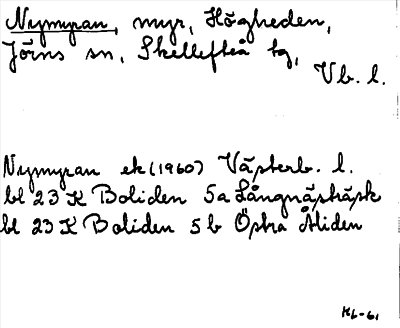 Nymyran, myr, Högheden,
Jörns sn, Skellefteå tg,
Vb. l.
Nymyran ek (1960) Västerb. l.
bl 23 K Boliden 5a Långnästräsk
bl 23 K Boliden 5 b Östra Åliden
KL-61